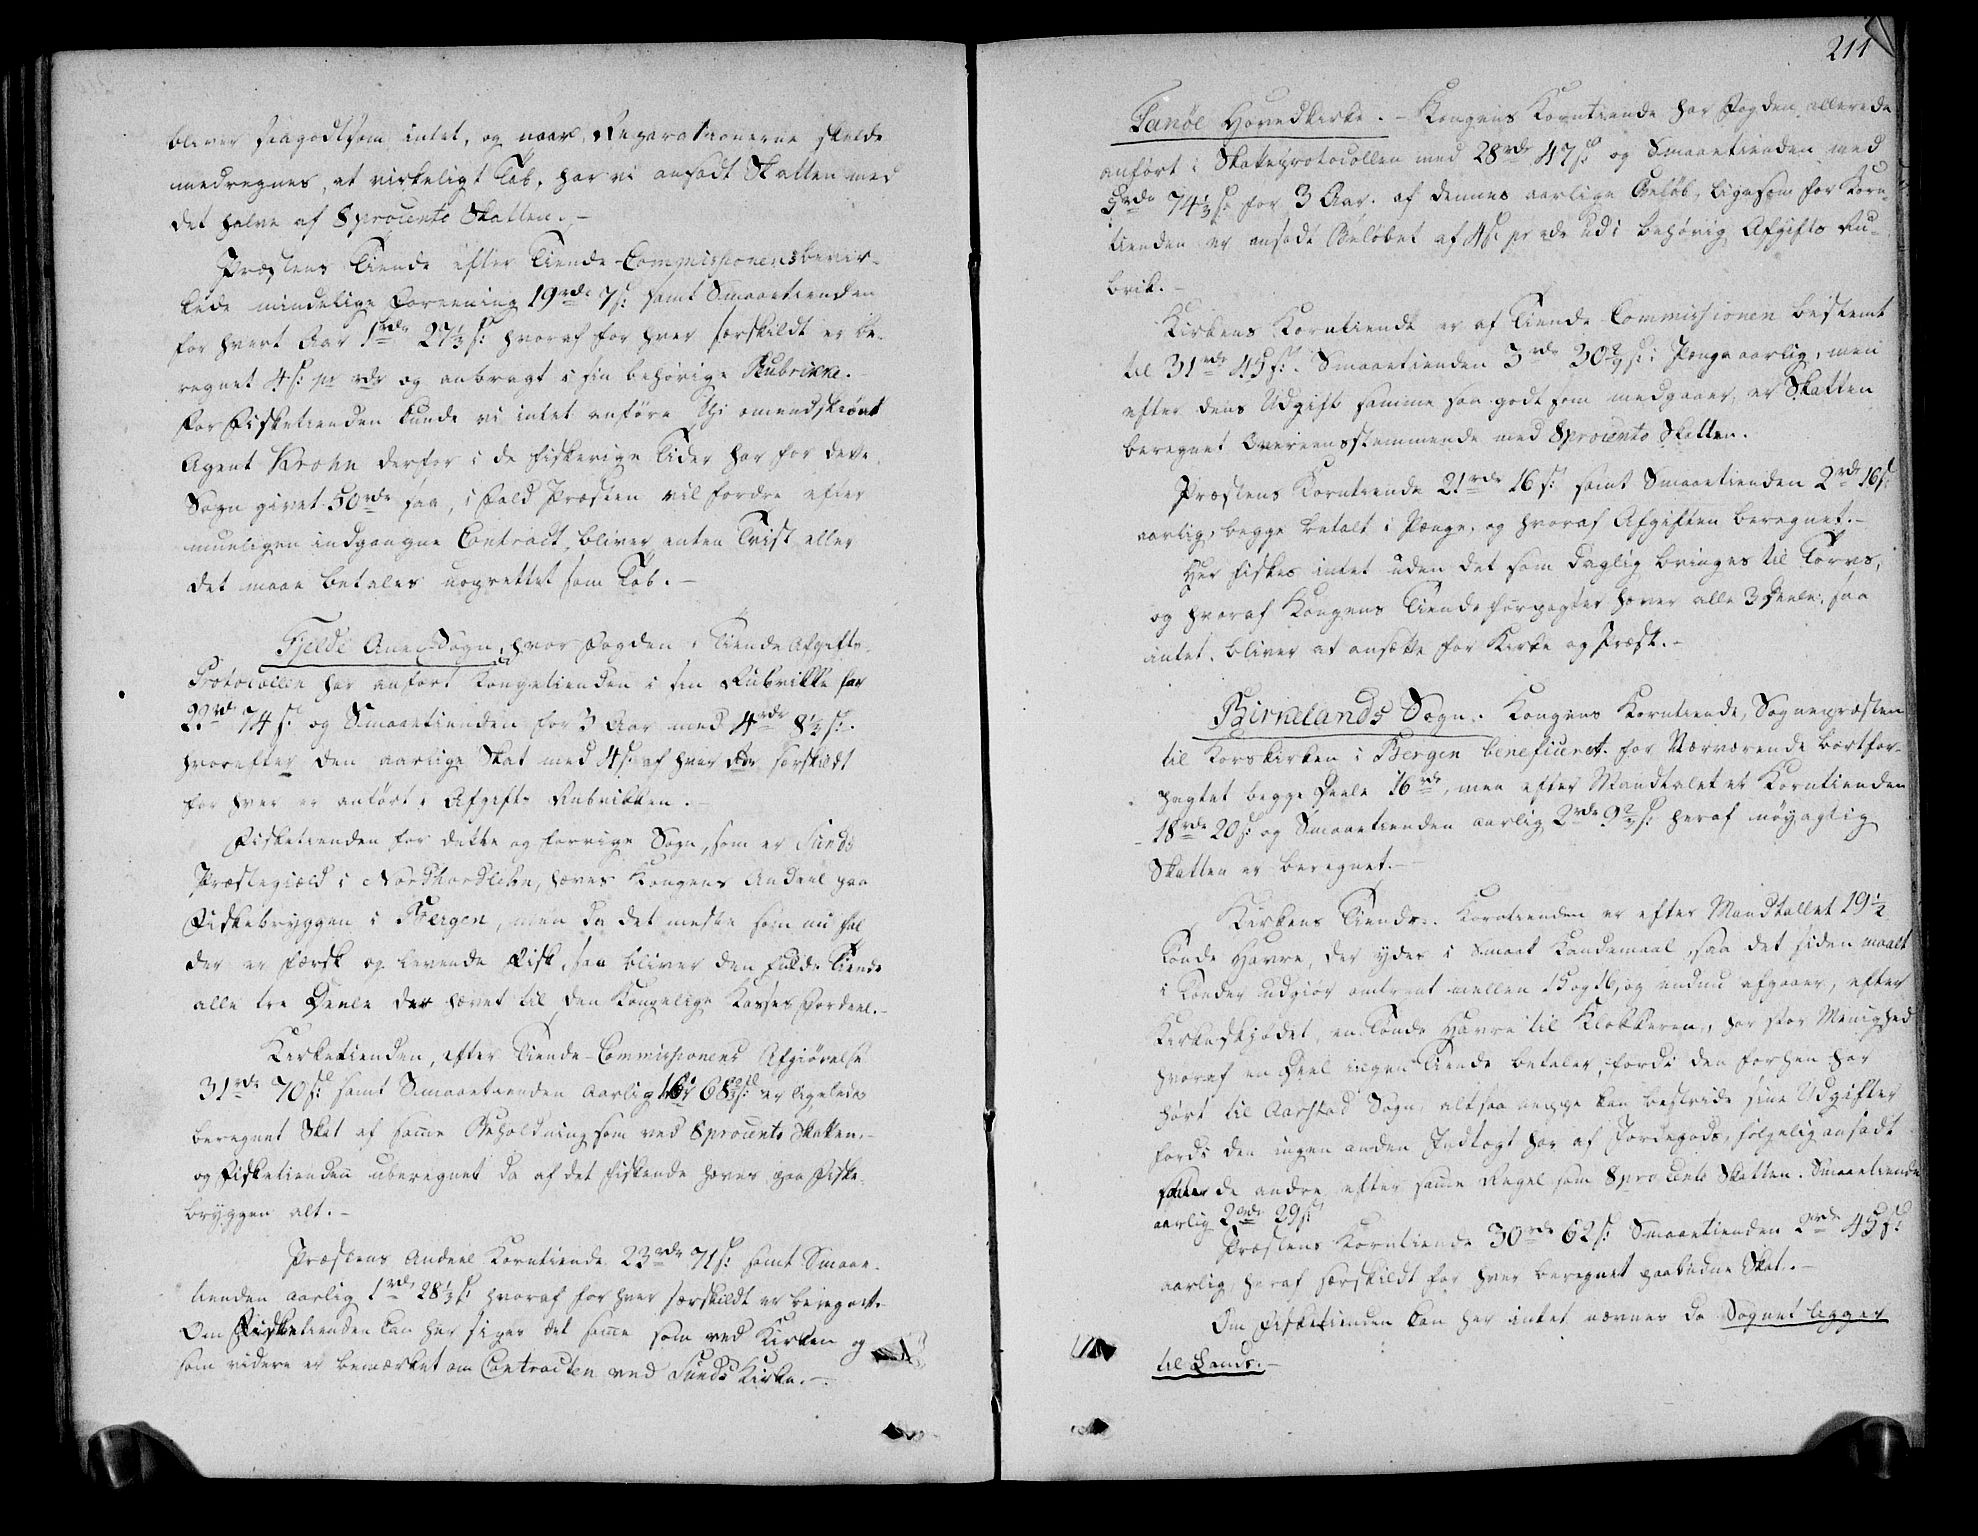 bliver saagodtsom intet, og naar Reparationerne skulde
medregnes, et virkeligt Tab, har vi ansadt Skatten med
det halve af 8 procento Skatten. –
Præstens Tiende efter Tiende-Commissionens bevir-
kede mindelige Foreening 19 rdr 7 s: samt Smaaetienden
for hvert Aar 1 rdr 27⅓ s: hvoraf for hver særskildt er be-
regnet 4 s: pr rdr og anbragt i sin behørige Rubrikke.
For Fisketienden kunde vi intet anføre, thi omendskiønt
Agent Krohn derfor i de fiskerige Tider har for dette
Sogn givet 50 rdr saa, i fald Præsten vil fordre efter
mueligen indgangne Contract, bliver enten Trist eller
det maae betales uoprettet som Tab. –
Fjelde Anex Sogn, hvor Fogden i Tiende Afgifts-
Protocollen har anført Kongetienden i sin Rubrikke har
22 rd 74 s: og Smaaetienden for 3 Aar med 4 rdr 8½ s:.
hvorefter den aarlige Skat med 4 s: af hver rdr særskildt
for hver er anført i Afgifts Rubrikken. –
Fisketienden for dette og forrige Sogn, som er Sunds
Præstegield i Nordhordlehn, hæves Kongens Andeel paa
Fiskebryggen i Bergen, men da det meste som nu fal
der er færsk og levende Fisk, saa bliver den fulde Tiende
alle tre Deele der hævet til den Kongelige Kasses Fordeel. –
Kirketienden, efter Tiende-Commissionens Afgiørelse
31 rdr 70 s: samt Smaaetienden aarlig 68⅔ s: er ligeledes
beregnet Skat af samme Beholdning som ved 8 procento Skatten, –
og Fisketienden uberegnet da af det fiskende hæves paa Fiske-
bryggen alt. –
Præstens Andeel Korntiende 23 rdr 71 s: samt Smaae-
tienden aarlig 1 rdr 28⅓ s: hvoraf for hver særskildt er beregnet.
Om Fisketienden kan her siges det samme som ved Kirken og
som videre er bemærket om Contracten ved Sunds Kirke. –
211
Fanøe Hovedkirke. – Kongens Korntiende har Fogden allerede
anført i Skatteprotocollen med 28 rdr 47 s: og Smaaetienden med
5 rdr 74⅓ s: for 3 Aar. af dennes aarlige Beløb, ligesom for Korn-
tienden er ansadt Beløbet af 4 s: pr rdr ud i behørig Afgifts Ru-
brik. –
Kirkens Korntiende er af Tiende Commissionen bestemt
til 31 rdr 45 s:. Smaaetienden 3 rdr 30 s: i Penge aarlig, men
efter dens Udgift samme saa godt som medgaaer, er Skatten
beregnet Overeensstemmende med 8 procento Skatten.
Præstens Korntiende 21 rdr 16 s: samt Smaaetienden 2 rdr 16 s:
aarlig, begge betalt i Penge, og hvoraf Afgiften beregnet. –
Her fiskes intet uden det som daglig bringes til Torvs,
og hvoraf Kongens Tiende forpagter hæver alle 3 Deele, saa
intet bliver at ansætte for Kirke og Præst. –
Birkelands Sogn. Kongens Korntiende, Sognepræsten
til Korskirken i Bergen beneficeret for Nærværende bortfor-
pagtet begge Deele 16 rdr, men efter Mandtalet er Korntienden
18 rdr 20 s: og Smaaetienden aarlig 2 rdr 9⅔ s: heraf nøyagtig
Skatten er beregnet. –
Kirkens Tiende. Korntienden er efter Mandtallet 19½
Tønde Havre, der ydes i Smaat Kandemaal, saa det siden maalt
i Tønder udgiør omtrent mellem 15 og 16, og endnu afgaaer, efter
Kirkeskjødet, en Tønde Havre til Klokkeren, har stor Menighed
hvoraf en Deel ingen Tiende betaler, fordi den forhen har
hørt til Aarstad Sogn, altsaa neppe kan bestride sine Udgifter
fordi den ingen anden Indtægt har af Jordegods, følgelig ansadt
de andre efter samme Regel som 8 procento Skatten. Smaaetiende
aarlig 2 rdr 29 s:
Præstens Korntiende 30 rdr 62 s: Smaaetienden 2 rdr 45 s:
aarlig heraf særskildt for hver beregnet paabudne Skat. –
Om Fisketienden kan her intet nævnes da Sognet ligger
til Lands. –